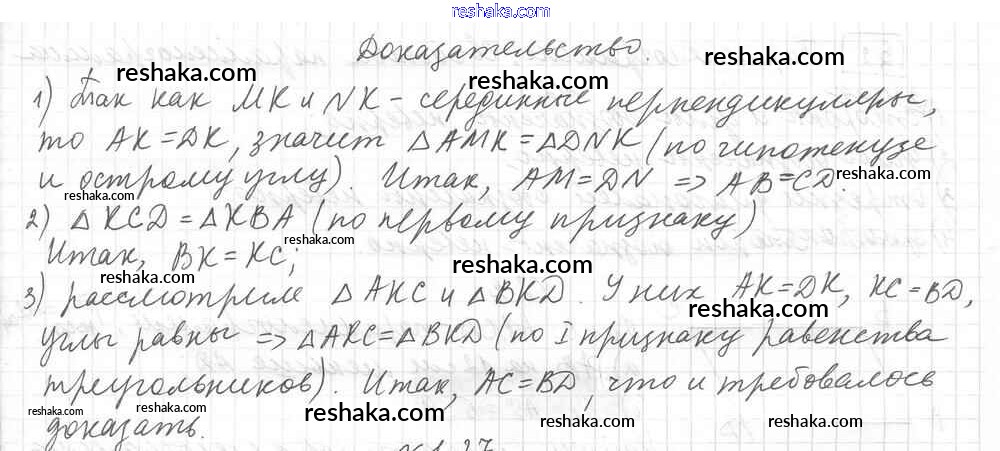 reshaka.com
Доказательство.
reshaka.com reshaka.com
1) Так как MK и NK – серединные перпендикуляры,
reshaka.com reshaka.com
то AK = DK, значит △AMK = △DNK (по гипотенузе
и острому углу). Итак, AM = DN => AB = CD.
reshaka.com reshaka.com
2) △KCD = △KBA (по первому признаку)
Итак, BK = KC;
reshaka.com reshaka.com
3) рассмотрим △AKC и △BKD. У них AK = DK, KC = BD,
reshaka.com reshaka.com
углы равны => △AKC = △BKD (по I признаку равенства
треугольников). Итак, AC = BD, что и требовалось
reshaka.com reshaka.com reshaka.com reshaka.com
доказать.